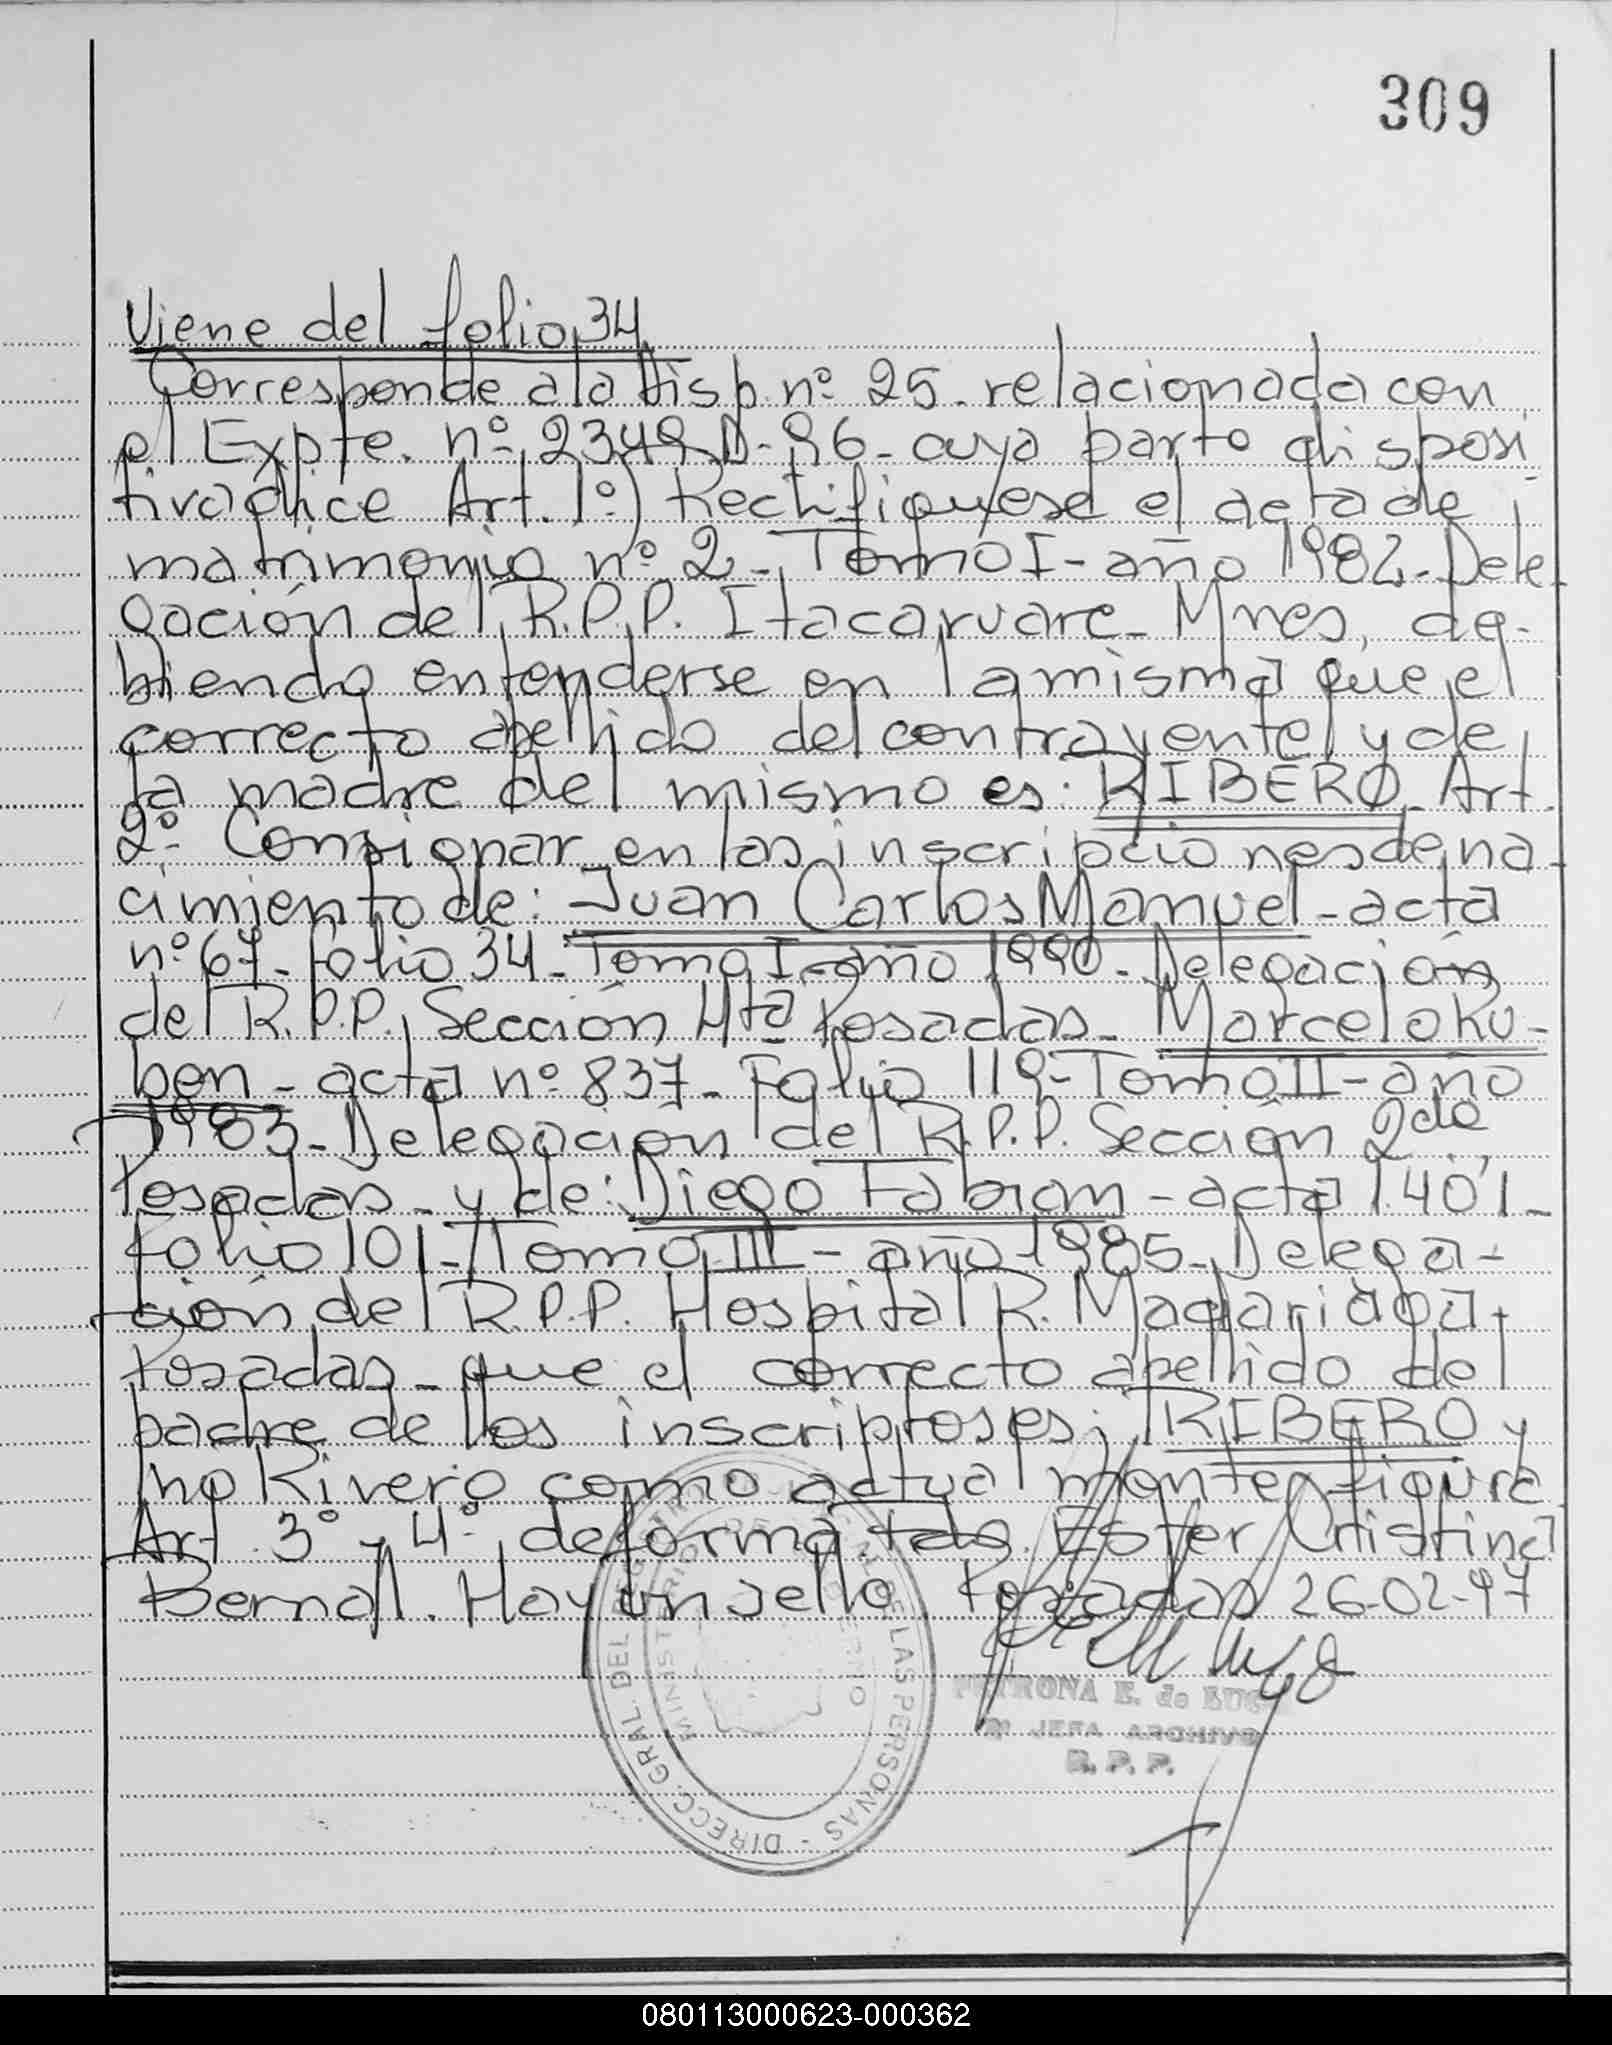 309
Viene del folio 34
Corresponde a la Disp. nº 25. relacionada con
el Expte. nº 2349.D-96- cuya parte disposi
tiva dice Art. 1º) Rectifiquese el acta de
matrimonio nº 2- Tomo I- año 1982- Dele-
gación del R.P.P. Itacaruare- Mnes, de-
biendo entenderse en la misma que el
correcto apellido del contrayente y de
la madre del mismo es: RIBERO- Art.
2º- Consignar en las inscripciones de na-
cimiento de: Juan Carlos Manuel- acta
nº 67- folio 34- Tomo I- año 1990- Delegación
del R.P.P. Sección 4ta Posadas- Marcelo Ru-
ben- acta nº 837- Folio 119- Tomo II- año
1983- Delegación del R.P.P. Sección 2da
Posadas- y de: Diego Fabian- acta 1.401-
Folio 101- Tomo III- año 1985- Delega-
ción del R.P.P. Hospital R. Madariaga-
Posadas- que el correcto apellido del
padre de los inscriptos es: RIBERO y
no Rivero como actualmente figura
Art. 3º y 4º- de forma. Fdo. Ester Cristina
Bernal. Hay un sello Posadas 26-02-97
PETRONA E. de LUGO
JEFA ARCHIVO
R. P. P.
DIRECC. GRAL. DEL REGISTRO DE LAS PERSONAS -
MINISTERIO DE GOBIERNO
080113000623-000362